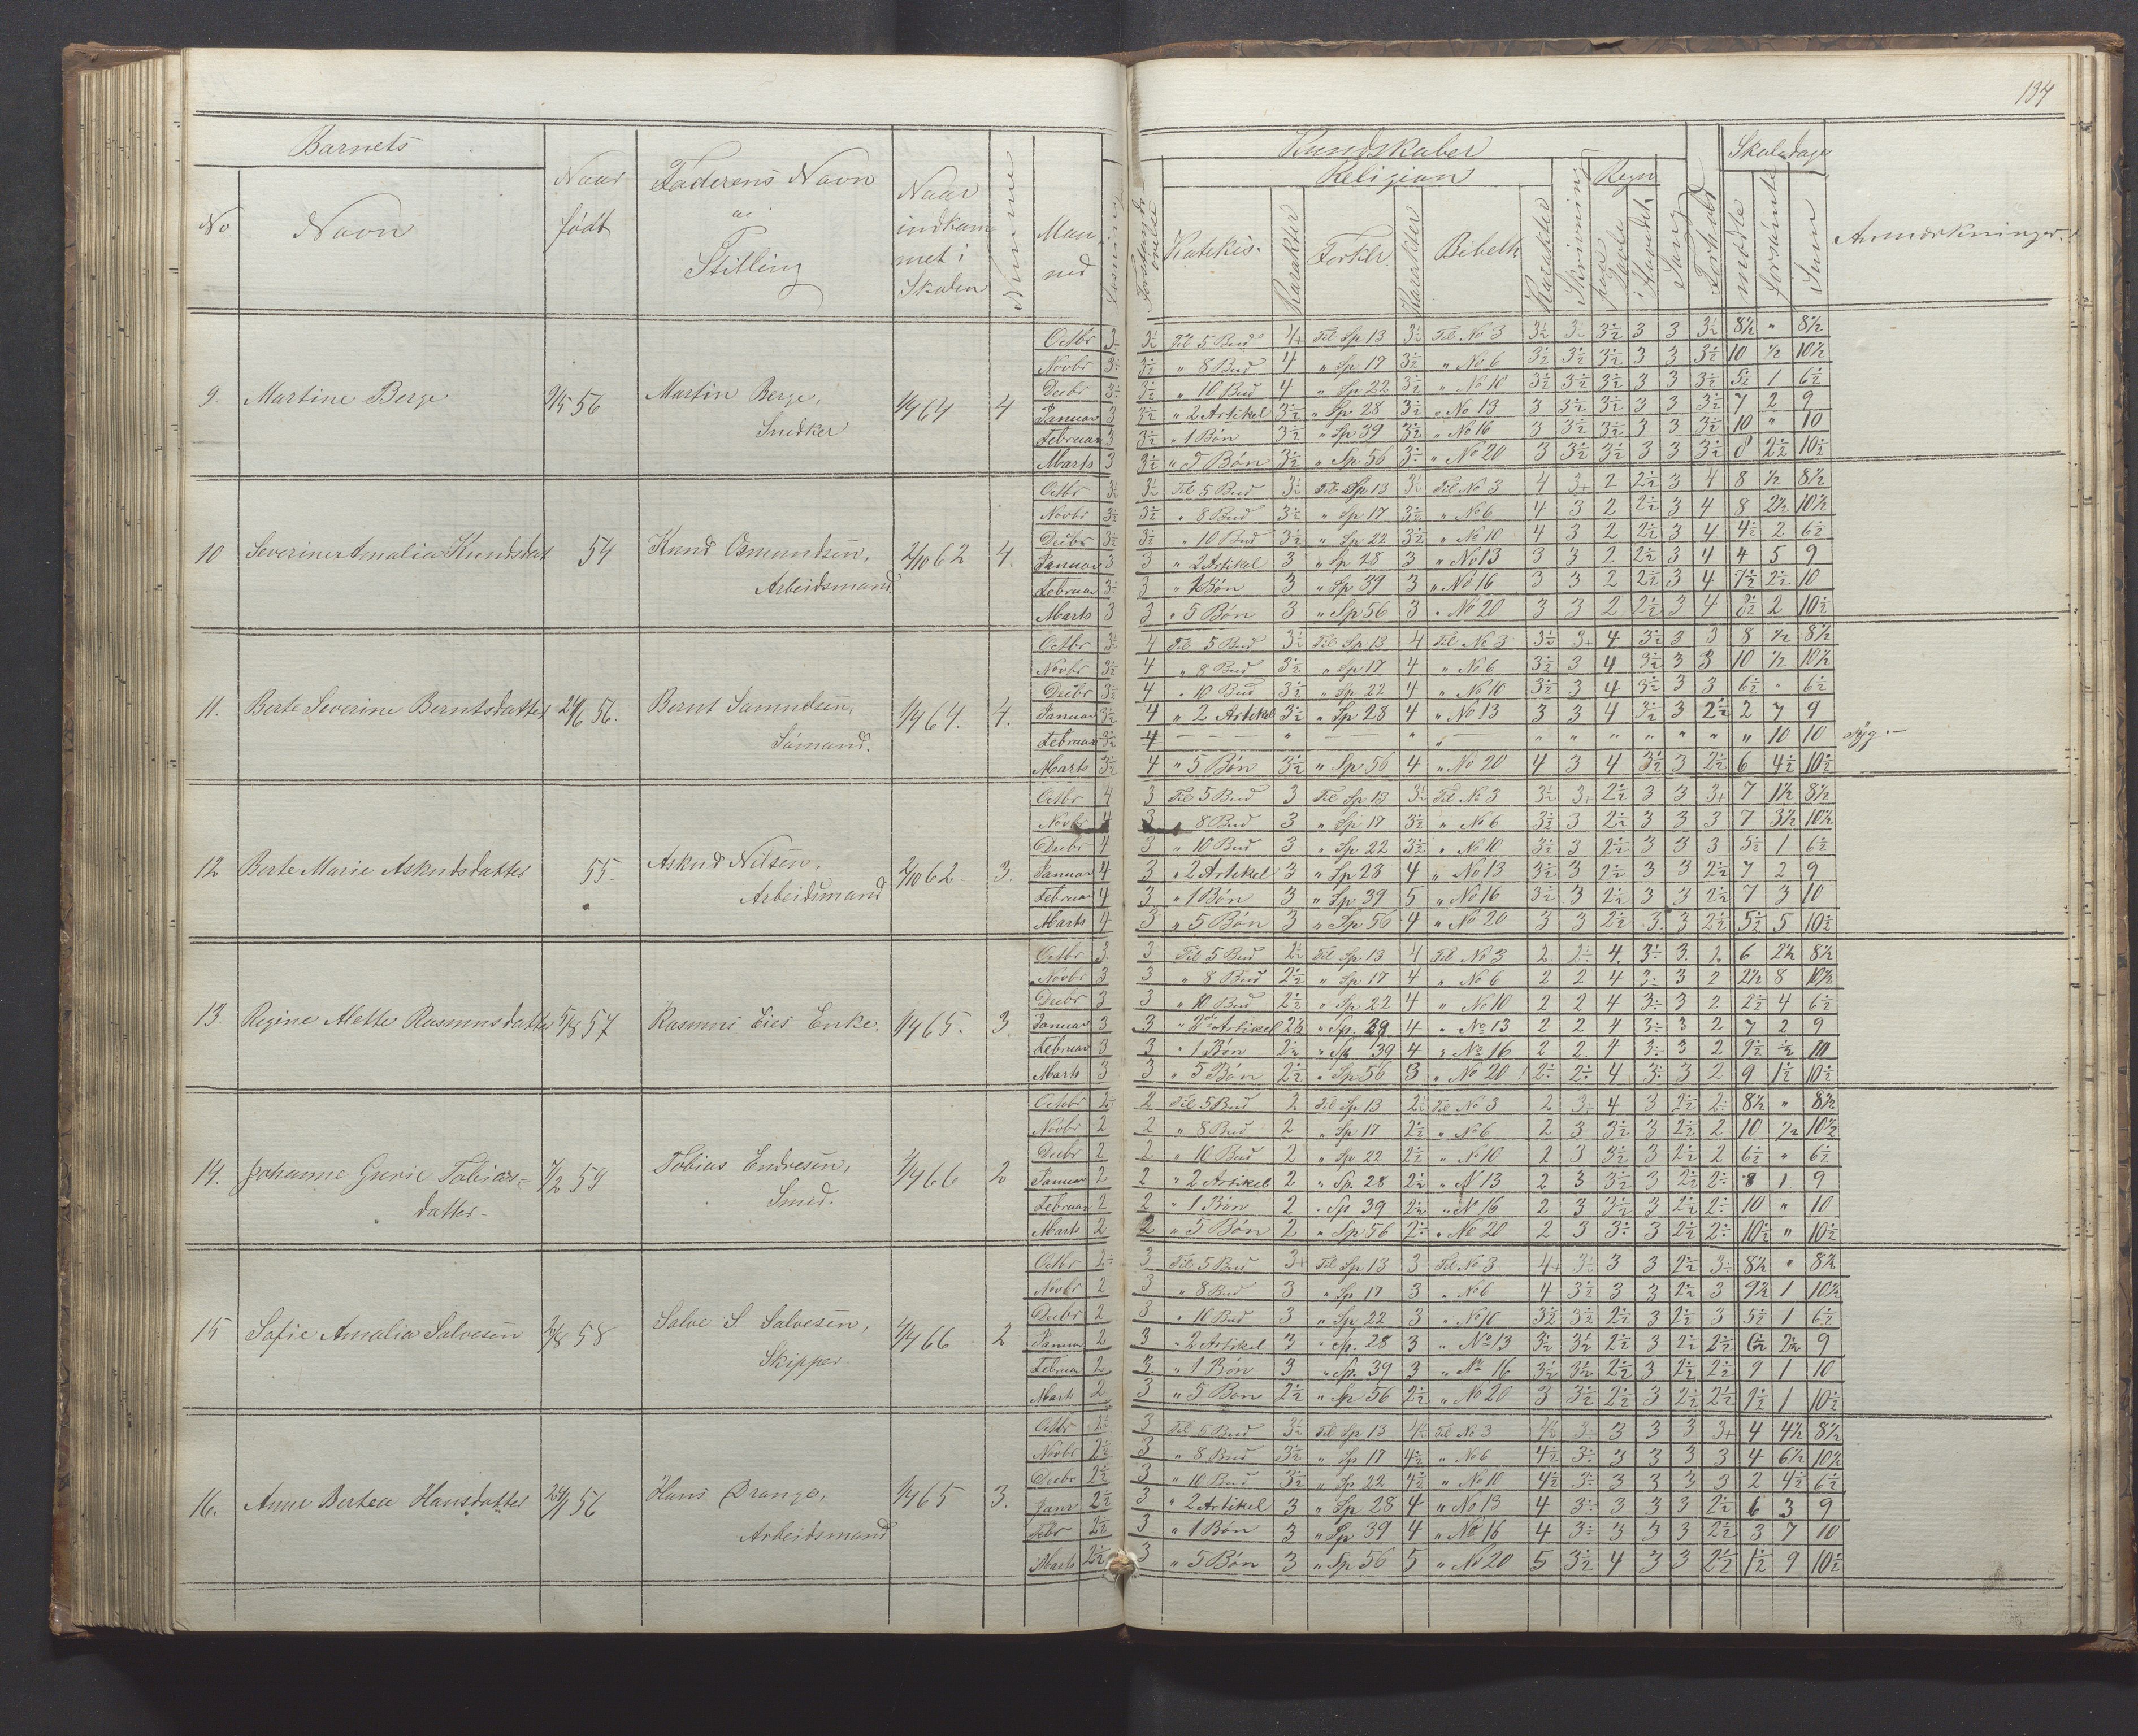 134
Barnets
No
Navn
Naar
født
Faderens Navn
og
Stilling
Naar
indkom
met i
Skolen
Numme
Maa
ned
Læsning
Forstands-
øvelse
Kundskaber
Religion
Katekis-
Karakter
Forklr
Karakter
Bibelh
Karakter
Skrivning
Regn
paa
Tavle
i
Hovedet
Sang
Forhold
Skoledage
mødte
forsømte
Sum
Anmærkninger
9. Martine Berge 9/5 56 Martin Berge, Snedker 1/4 64 4
Octbr 3 3½ Til 5 Bud 4+ Til Sp 13 3½ Til No 3 3½ 3 3½ 3 3 3½ 8½ " 8½
Novbr 3 3½ " 8 Bud 4 " Sp 17 3½ " No 6 3½ 3½ 3½ 3 3 3½ 10 ½ 10½
Decbr 3 3½ " 10 Bud 4 " Sp 22 3½ " No 10 3½ 3½ 3½ 3 3 3½ 5½ 1 6½
Januar 3 3½ " 2 Artikel 3½ " Sp 28 3½ " No 13 3 3½ 3½ 3 3 3½ 7 2 9
Februar 3 3½ " 1 Bøn 3½ " Sp 39 3½ " No 16 3 3½ 3½ 3 3 3½ 10 " 10
Marts 3 3½ " 5 Bøn 3½ " Sp 56 3½ " No 20 3 3½ 3½ 3 3 3½ 8 2½ 10½
10 Severine Amalia Knudsdat 54 Knud Osmundsen, Arbeidsmand 2/10 62 4.
Octbr 3½ 3½ Til 5 Bud 3½ Til Sp 13 3½ Til No 3 4 3+ 2 2½ 3 4 8 ½ 8½
Novbr 3½ 3½ " 8 Bud 3½ " Sp 17 3½ " No 6 4 3 2 2½ 3 4 8 2½ 10½
Decbr 3½ 3½ " 10 Bud 3½ " Sp 22 3½ " No 10 4 3 2 2½ 3 4 4½ 2 6½
Januar 3 3 " 2 Artikel 3 " Sp 28 3 " No 13 3 3 2 2½ 3 4 4 5 9
Februar 3 3 " 1 Bøn 3 " Sp 39 3 " No 16 3 3 2 2½ 3 4 7½ 2½ 10
Marts 3 3 " 5 Bøn 3 " Sp 56 3 " No 20 3 3 2 2½ 3 4 8½ 2 10½
11. Berte Severine Berntsdatter 24/6 56. Bernt Samuelsen, Sømand. 1/4 64. 4.
Octbr 3½ 4 Til 5 Bud 3½ Til Sp 13 4 Til No 3 3½ 3+ 4 3½ 3 3 8 ½ 8½
Novbr 3½ 4 " 8 Bud 3½ " Sp 17 4 " No 6 3½ 3 4 3½ 3 3 10 ½ 10½
Decbr 3½ 4 " 10 Bud 3½ " Sp 22 4 " No 10 3½ 3 4 3½ 3 3 6½ " 6½
Januar 3½ 4 " 2 Artikel 3½ " Sp 28 4 " No 13 3 3 4 3½ 3 2½ 2 7 9
Februar 3½ 4 — — — " — — " " — " " " " " " " 10 10 syg.—
Marts 3½ 4 " 5 Bøn 3½ " Sp 56 4 " No 20 4 3 4 3½ 3 2½ 6 4½ 10½
12 Berte Marie Askudsdatter 55. Askud Nilsen, Arbeidsmand 2/10 62. 3.
Octbr 4 3 Til 5 Bud 3 Til Sp 13 3½ Til No 3 3½ 3+ 2½ 3 3 3+ 7 1½ 8½
Novbr 4 3 " 8 Bud 3 " Sp 17 3½ " No 6 3½ 3 2½ 3 3 3 7 3½ 10½
Decbr 4 3 " 10 Bud 3 " Sp 22 3½ " No 10 3½ 3 2½ 3 3 3 5½ 1 6½
Januar 4 3 " 2 Artikel 3 " Sp 28 4 " No 13 3½ 3 2½ 3 3 2½ 7 2 9
Februar 4 3 " 1 Bøn 3 " Sp 39 5 " No 16 3½ 3 2½ 3 3 2½ 7 3 10
Marts 4 3 " 5 Bøn 3 " Sp 56 4 " No 20 3 3 2½ 3. 3 2½ 5½ 5 10½
13 Regine Mette Rasmusdatter 5/8 57 Rasmus Eies Enke. 1/4 65. 3.
Octbr 3. 3 Til 5 Bud 2½ Til Sp 13 4 Til No 3 2 2÷ 4. 3÷ 3. 2 6 2½ 8½
Novbr 3 3 " 8 Bud 2½ " Sp 17 4 " No 6 2 2 4 3÷ 3 2 2½ 8 10½
Decbr 3 3 " 10 Bud 2½ " Sp 22 4 " No 10 2 2 4 3÷ 3 2 2½ 4 6½
Januar 3 3 " 2de Artikel 2½ " Sp. 28 4 " No 13 2 2 4 3÷ 3 2 7 2 9
Februar 3 3 " 1 Bøn 2½ " Sp 39 4 " No 16 2 2 4 3÷ 3 2 9½ ½ 10
Marts 3 3 " 5 Bøn 2½ " Sp 56 3 " No 20 2÷ 2÷ 4 3÷ 3 2 9 1½ 10½
14. Johanne Gurie Tobias= datter- 7/2 59 Tobias Endresen, Smed. 4/4 66 2
Octbr 2÷ 2 Til 5 Bud 2 Til Sp 13 2½ Til No 3 2 3÷ 4 3 2½ 2÷ 8½ " 8½
Novbr 2 2 " 8 Bud 2 " Sp 17 2½ " No 6 2 3 3½ 3 2½ 2 10 ½ 10½
Decbr 2 2 " 10 Bud 2 " Sp 22 2½ " No 10 2 3 3½ 3 2½ 2 6½ " 6½
Januar 2 2 " 2 Artikel 2 " Sp 28 2½ " N 13 2 3 3½ 3 2½ 2÷ 8 1 9
Februar 2 2 " 1 Bøn 2 " Sp 39 2½ " No 16 2 3 3½ 3 2½ 2÷ 10 " 10
Marts 2 2 " 5 Bøn 2 " Sp 56 2÷ " No 20 2 3 3÷ 3 2½ 2÷ 10½ " 10½
15 Sofie Amalia Salvesen 2/8 58 Salve S. Salvesen, Skipper. 4/4 66 2
Octbr 2÷ 3 Til 5 Bud 3+ Til Sp 13 3 Til No 3 4+ 3½ 3 3 2½ 3÷ 8½ " 8½
Novbr 2 3 " 8 Bud 3 " Sp 17 3 " No 6 4 3½ 3 3 2½ 3 9½ 1 10½
Decbr 2 3 " 10 Bud 3 " Sp 22 3 " No 10 3½ 3½ 2½ 3 2½ 3 5½ 1 6½
Januar 2 3 " 2 Artikel 3 " Sp. 28 3 " No 13 3½ 3½ 2½ 3 2½ 2½ 6½ 2½ 9
Februa 2 3 " 1 Bøn 3 " Sp. 39 3 " No 16 3½ 3½ 2½ 3 2½ 2½ 9 1 10
Marts 2 3 " 5 Bøn 2½ " Sp 56 2½ " No 20 3 3½ 2½ 3 2½ 2½ 9½ 1 10½
16. Anne Bertea Hansdatter 24/1 56 Hans Drange, Arbeidsmand 1/4 65 3.
Octbr 2½ 3 Til 5 Bud 3½ Til Sp 13 4½ Til No 3 4½ 3÷ 3 3 3 3+ 4 4½ 8½
Novbr 2½ 3 " 8 Bud 3½ " Sp 17 4½ " No 6 4½ 3÷ 3 3 3 3 4 6½ 10½
Decbr 2½ 3 " 10 Bud 3½ " Sp 22 4½ " No 10 4½ 3÷ 3 3 3 3 2 4½ 6½
Janr 2½ 3 " 2 Artikel 3 " Sp 28 4 " No 13 4 3÷ 3 3 3 2½ 6 3 9
Febr 2½ 3 " 1 Bøn 3 " Sp 39 4 " No 16 4 3÷ 3 3 3 2½ 3 7 10
Marts 2½ 3 " 5 Bøn 3 " Sp 56 5 " No 20 5 3½ 4 3 3 2½ 1½ 9 10½